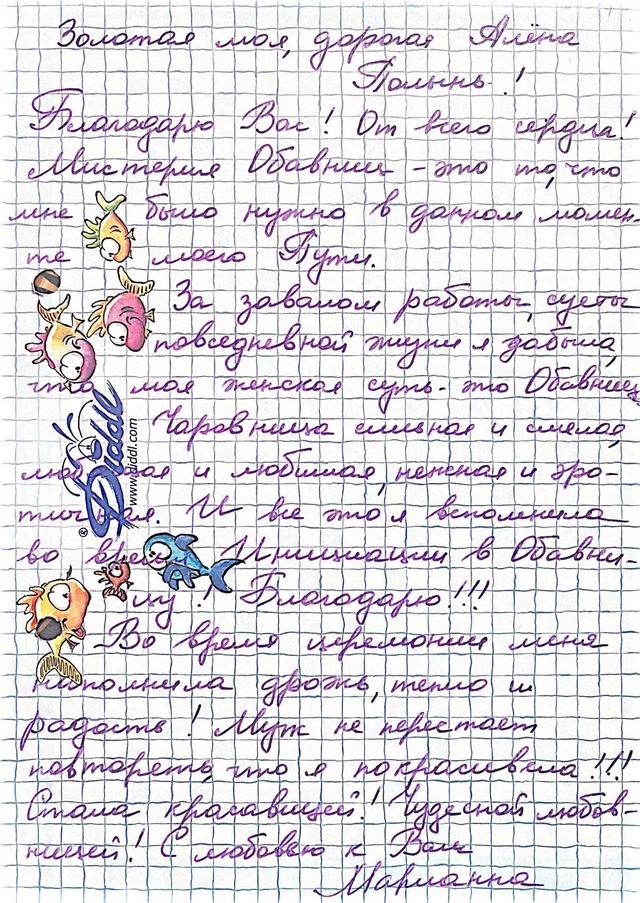 Золотая моя, дорогая Алёна
Полынь!
Благодарю Вас! От всего сердца!
Мистерия Обавниц - это то, что
мне было нужно в данном момен-
те моего Пути.
За завалом работы, суеты
повседневной жизни я забыла,
что моя женская суть - это Обавница,
Чаровница сильная и смелая,
и любимая, нежная и эро-
тичная. И все это я вспомнила
во время Инициации в Обавни-
цу! Благодарю!!!
Во время церемонии меня
наполнила дрожь, тепло и
радость! Муж не перестает
повторять, что я покрасивела!!!
Стала красавицей! Чудесной любов-
ницей! С любовью к Вам
Марианна
Diddl
www.diddl.com